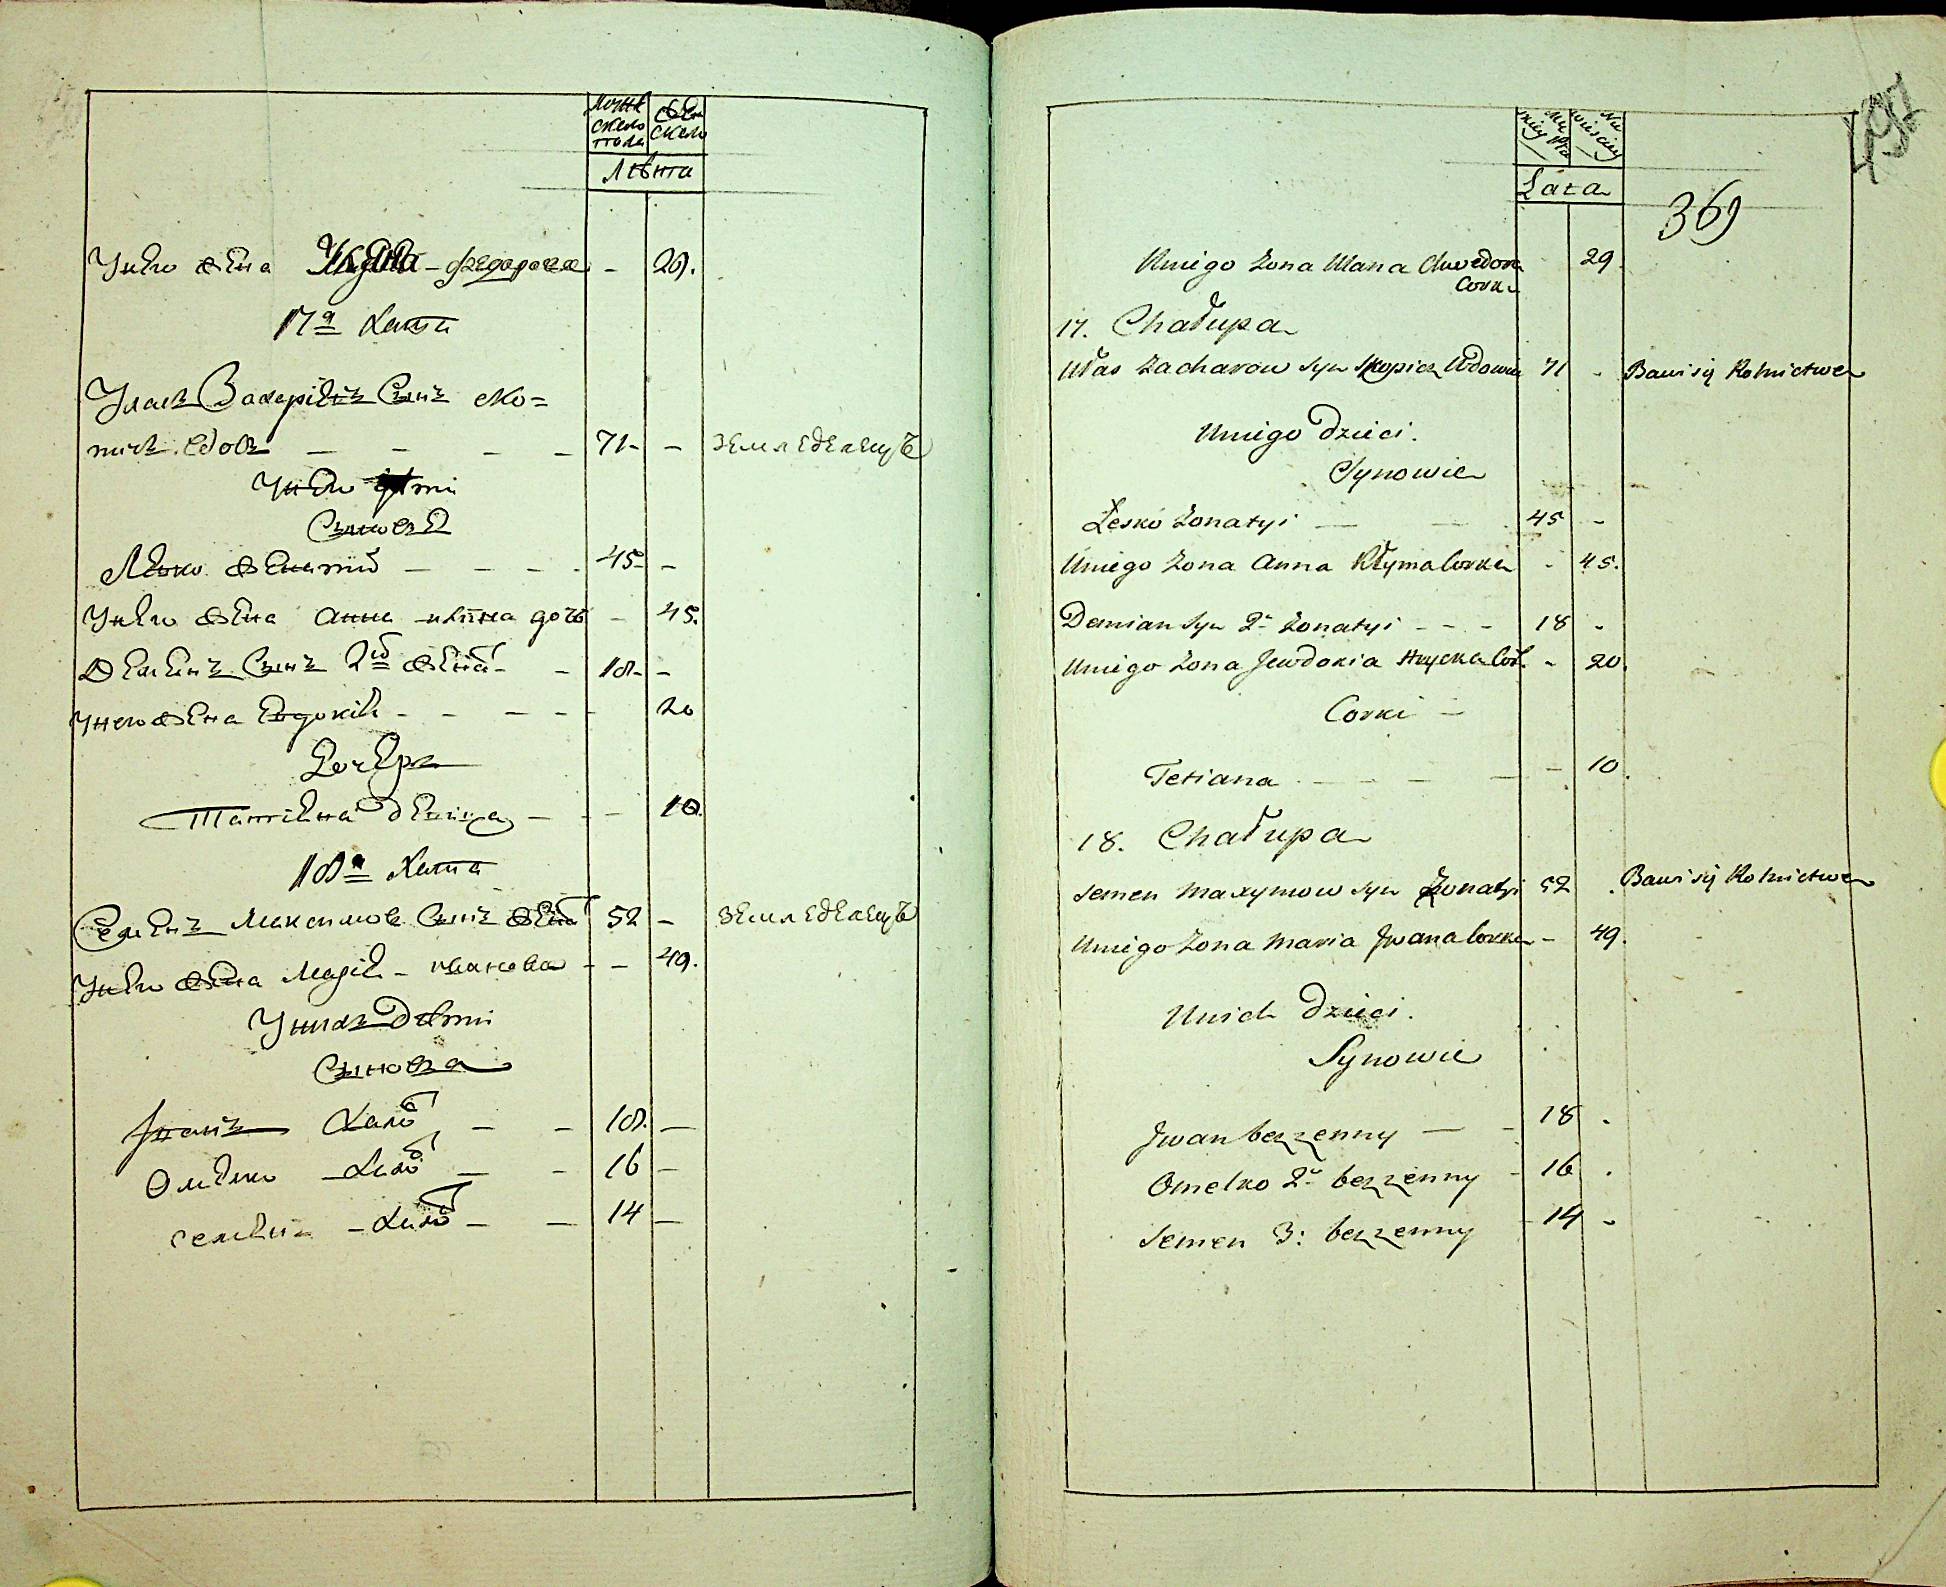 мужеского пола
женского
Лѣта
Унего жена Уляна федорова - 29.
17я Хата
Уласъ Захаріевъ Сынъ ско=
пичъ вдовъ — — — — 71 - — землѣделецъ
Унего дѣти
Сыновья
Лѣско женатій — — — 45 - —
Унего жена Анна климадочь — 45.
Демьянъ Сынъ 2й женат - — 18 - —
Унего жена Евдокія - - - - 20
Дочерѣ
Таттіяна девица — - — 10.
18я Хата
Семенъ Максимовъ Сынъ женат 52 — землѣделецъ
Унего жена Марія - иванова - — 49.
Унихъ Дѣти
Сыновья
Иванъ Холо — — 18. —
Омелко — Холо — — 16 —
семенъ — Холо — — 14 —
497
Lata
369
Uniego Zona Ulana Chwedora Corka 29
17. Chałupa
Ułas Zacharow Syn Skopicz Wdowiec 71 - Bawi się Rolnictwem
Uniego Dzieci.
Synowie
Lesko Zonatyi — — 45 -
Uniego Zona Anna Kłyma Corka - 45.
Demian Syn 2i Zonatyi - - - 18 -
Uniego Zona Jewdokia Hrycka Cor. - 20.
Corki —
Tetiana - — — — — 10.
18. Chałupa
Semen Maxymow Syn Zonatyi 52 . Bawi się Rolnictwem
Uniego Zona Maria Jwana Corka - 49.
Unich Dzieci.
Synowie
Jwan bezzenny — - 18 .
Omelko 2i bezzenny - 16 .
Semen 3: bezzenny - 14 -